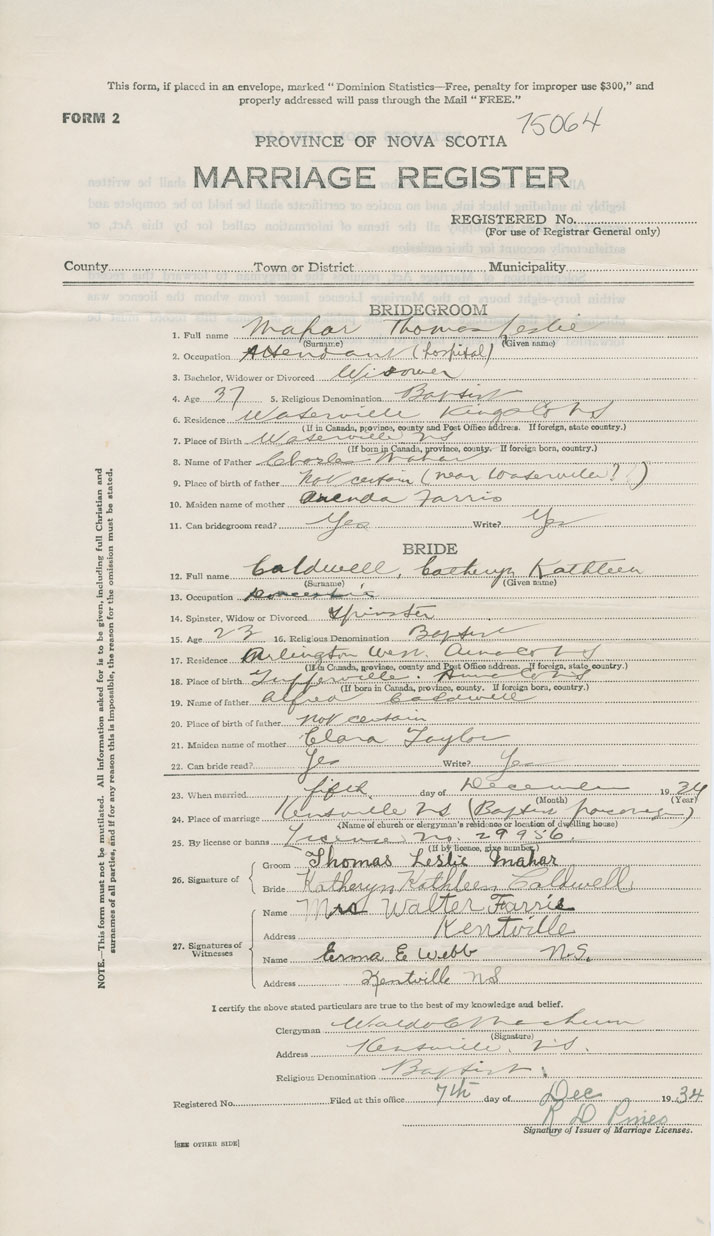 This form, if placed in an envelope, marked "Dominion Statistics—Free, penalty for improper use $300," and
properly addressed will pass through the Mail "FREE."
FORM 2
75064
PROVINCE OF NOVA SCOTIA
MARRIAGE REGISTER
REGISTERED No.
(For use of Registrar General only)
County Town or District Municipality
BRIDEGROOM
1. Full name Mahar Thomas Leslie
(Surname) (Given name)
2. Occupation Attendant (hospital)
3. Bachelor, Widower or Divorced Widower
4. Age 37 5. Religious Denomination Baptist
6. Residence Waterville Kings Co NS
(If in Canada, province, county and Post Office address. If foreign, state country.)
7. Place of Birth Waterville NS
(If born in Canada, province, county. If foreign born, country.)
8. Name of Father Charles Mahar
9. Place of birth of father not certain (near Waterville?)
10. Maiden name of mother Farris
11. Can bridegroom read? Yes Write? Yes
BRIDE
12. Full name Caldwell, Catheryn Kathleen
(Surname) (Given name)
13. Occupation
14. Spinster, Widow or Divorced Spinster
15. Age 23 16. Religious Denomination Baptist
17. Residence Arlington West. Anna Co NS
(If in Canada, province, county and Post Office address. If foreign, state country.)
18. Place of birth Tupperville. Anna Co NS
(If born in Canada, province, county. If foreign born, country.)
19. Name of father Alfred Caldwell
20. Place of birth of father not certain
21. Maiden name of mother Clara Taylor
22. Can bride read? Yes Write? Yes
23. When married fifth day of December 19
(Month) (Year)
24. Place of marriage Kentville NS (Baptist parsonage)
(Name of church or clergyman's residence or location of dwelling house)
25. By license or banns License No. 29956.
(If by licence, give number)
26. Signature of Groom Thomas Leslie Mahar
Bride Katheryn Kathleen Caldwell
27. Signatures of Witnesses Name Mrs Walter Farris
Address Kentville
Name Erma E Webb N.S.
Address Kentville NS
I certify the above stated particulars are true to the best of my knowledge and belief.
Clergyman Waldo C Machum
(Signature)
Address Kentville. N.S.
Religious Denomination Baptist.
Registered No. Filed at this office 7th day of Dec 19 34
R D
Signature of Issuer of Marriage Licenses.
[SEE OTHER SIDE]
NOTE.—This form must not be mutilated. All information asked for is to be given, including full Christian and
surnames of all parties, and if for any reason this is impossible, the reason for the omission must be stated.